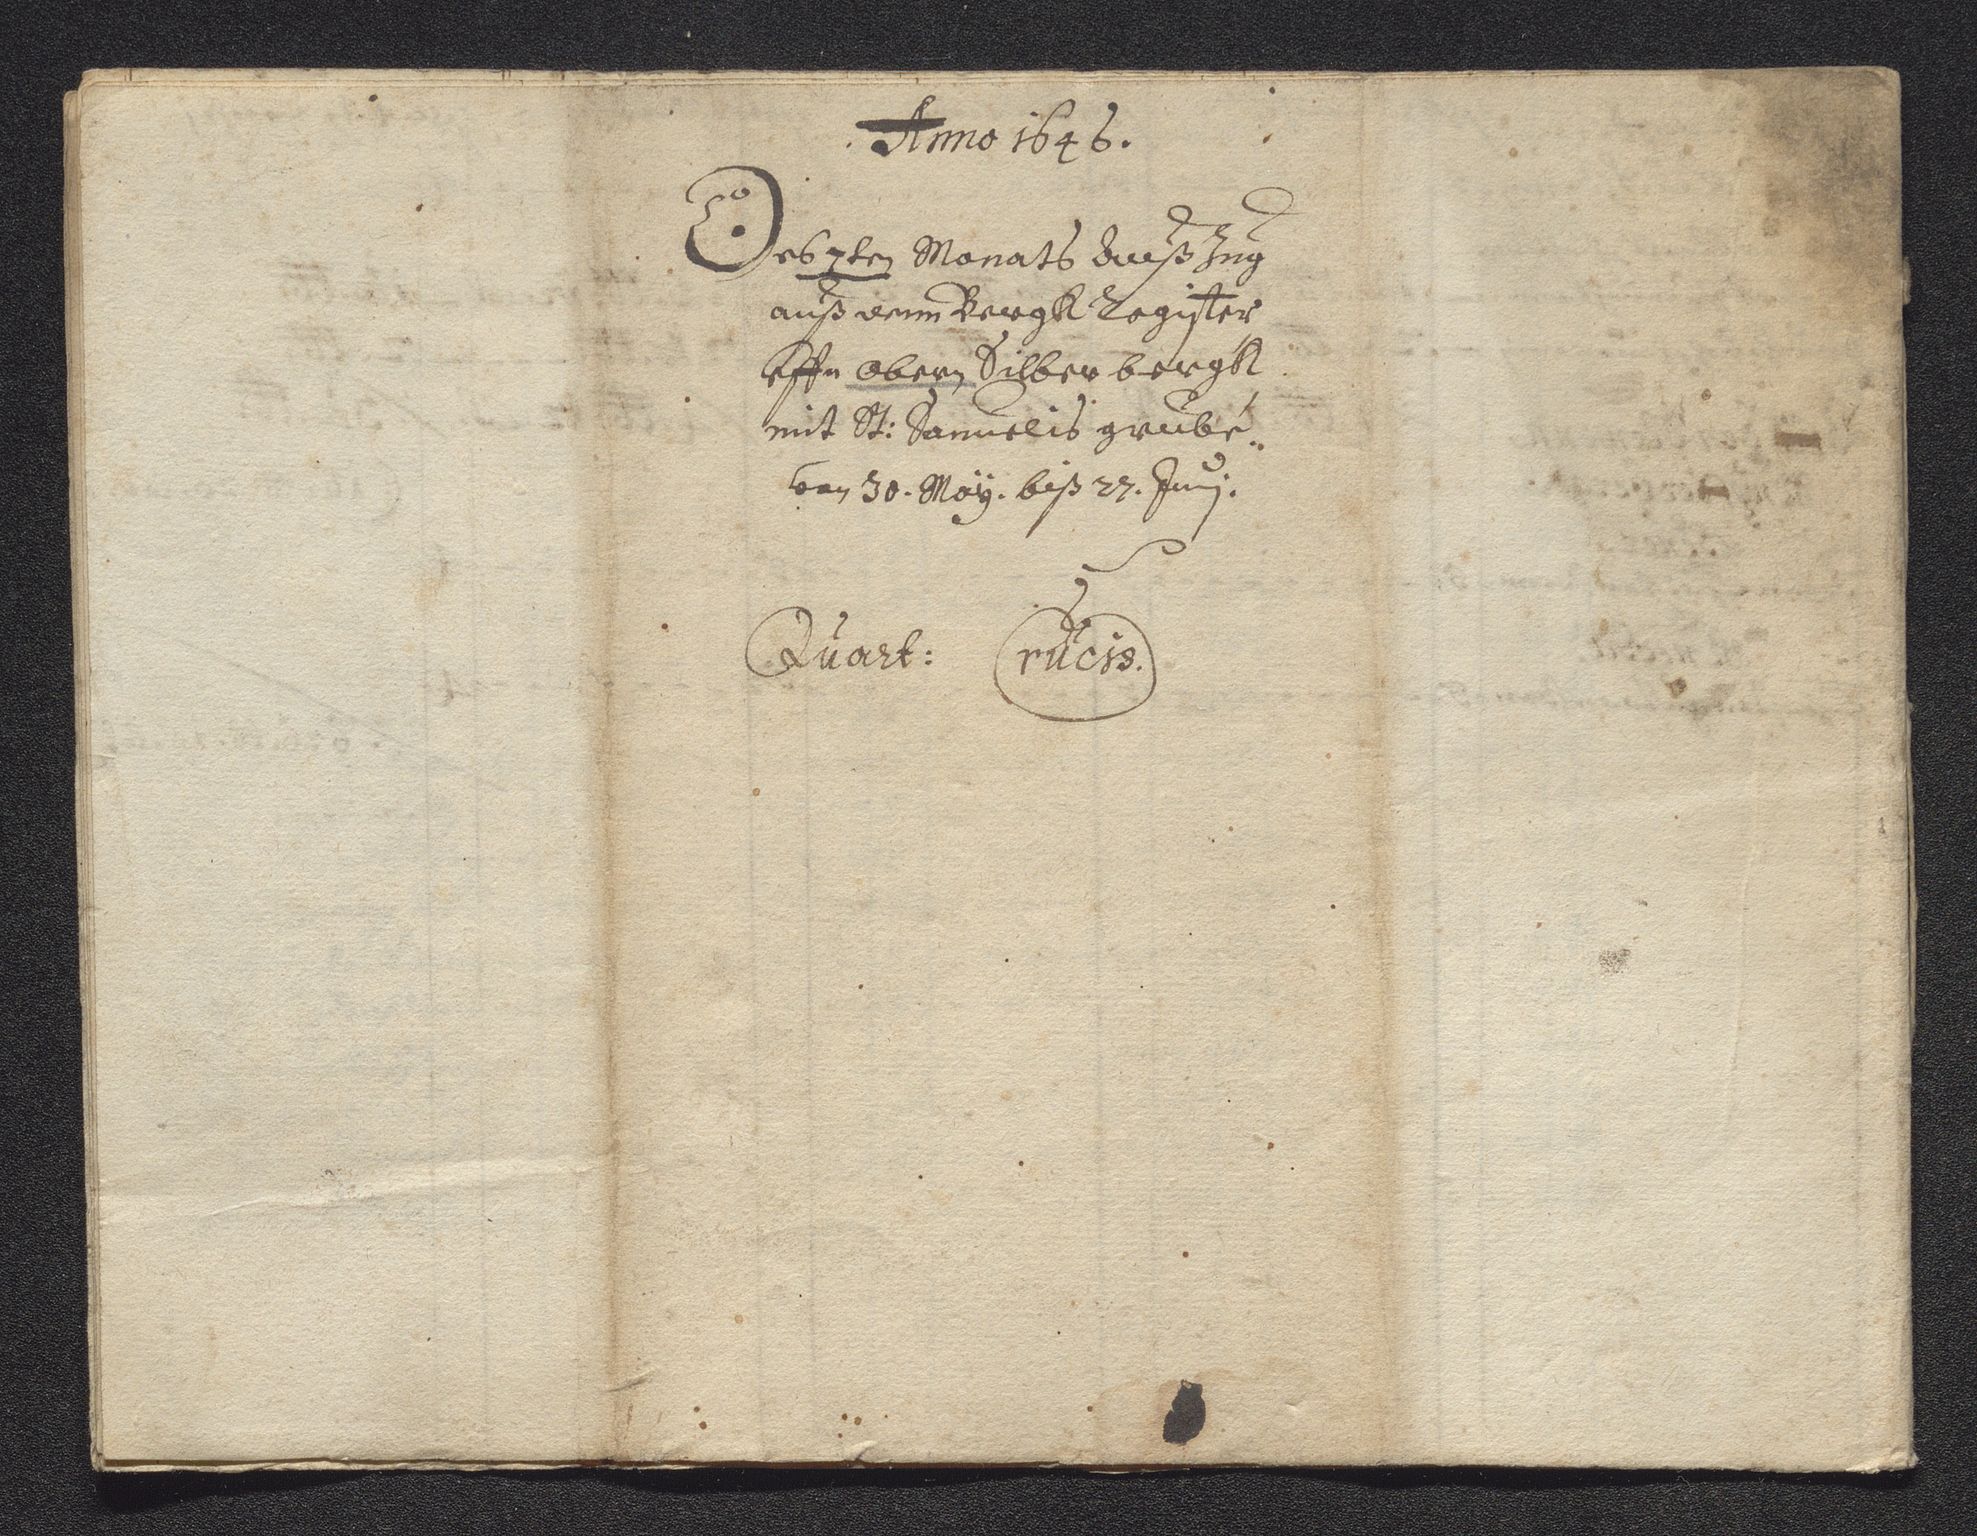 Anno 1646.
Des 7ten Monats Außzug
auß dem Bergk Register
Effn obern Silber bergk
mit St: Samuelis grube
von 30. Maÿ. biß 27. Junj.
Quart: Crucis.